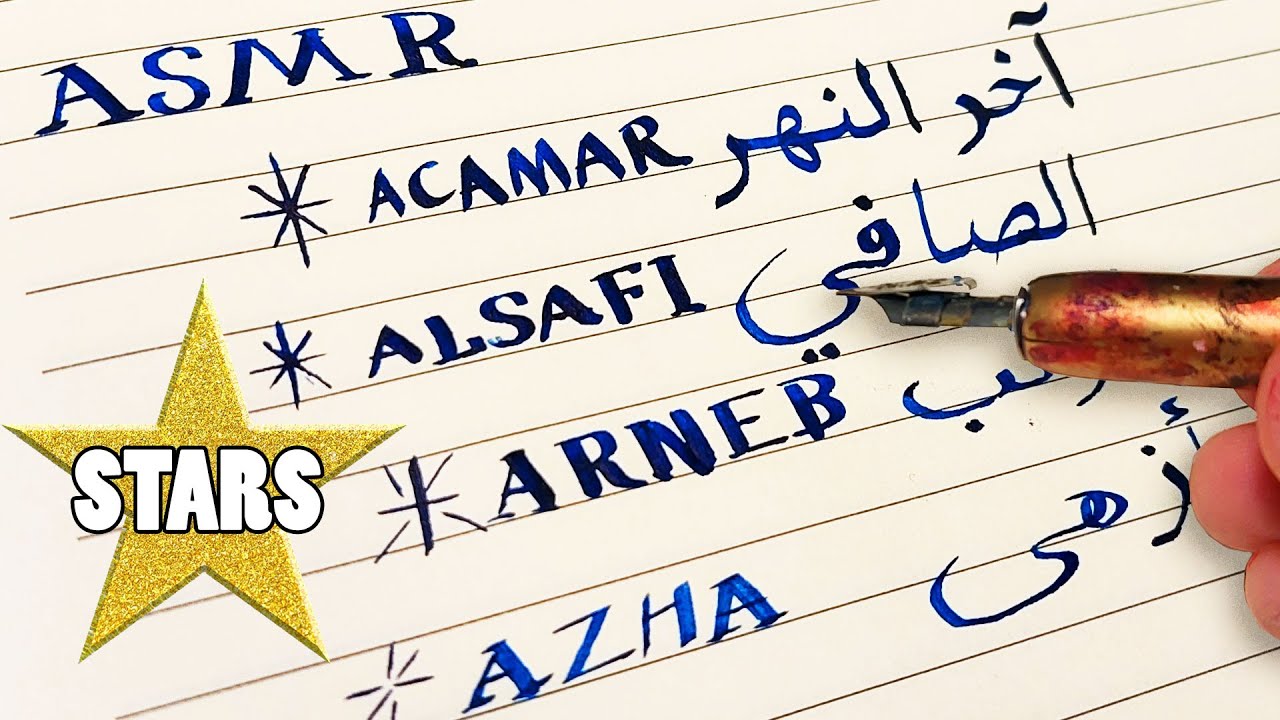 ASMR
ACAMAR آخر النهر
ALSAFI الصافي
ARNEB
AZHA أزهى
STARS